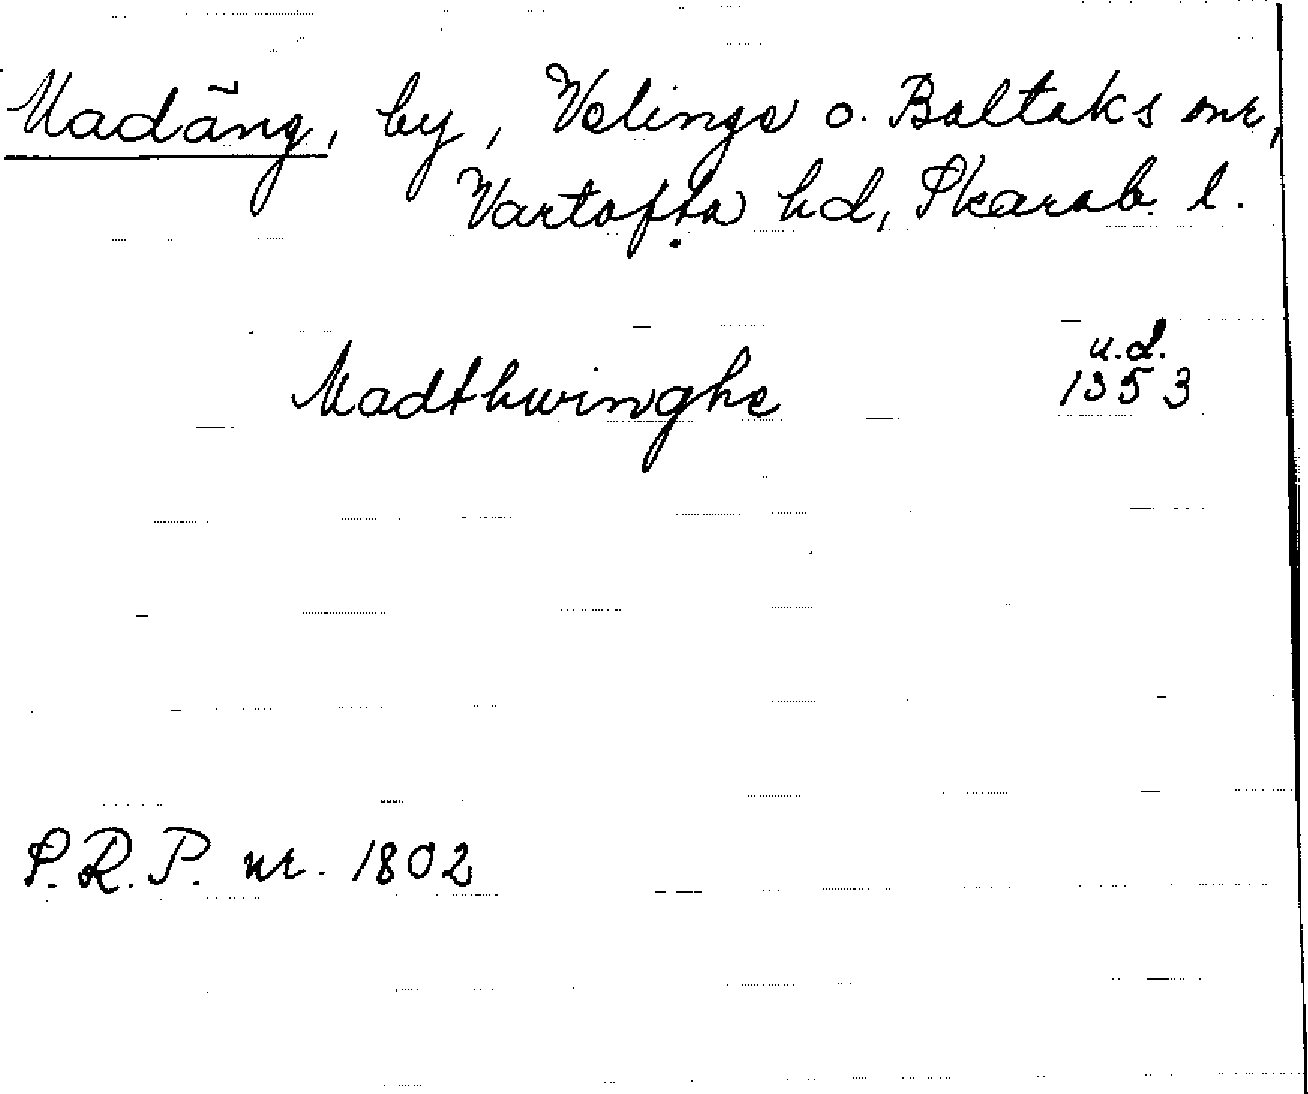 Madäng, by, Velinga o. Baltaks snr,
Vartofta hd, Skarab. l.
u.d.
Madthwinghe 1353
S.R.P. nr. 1802